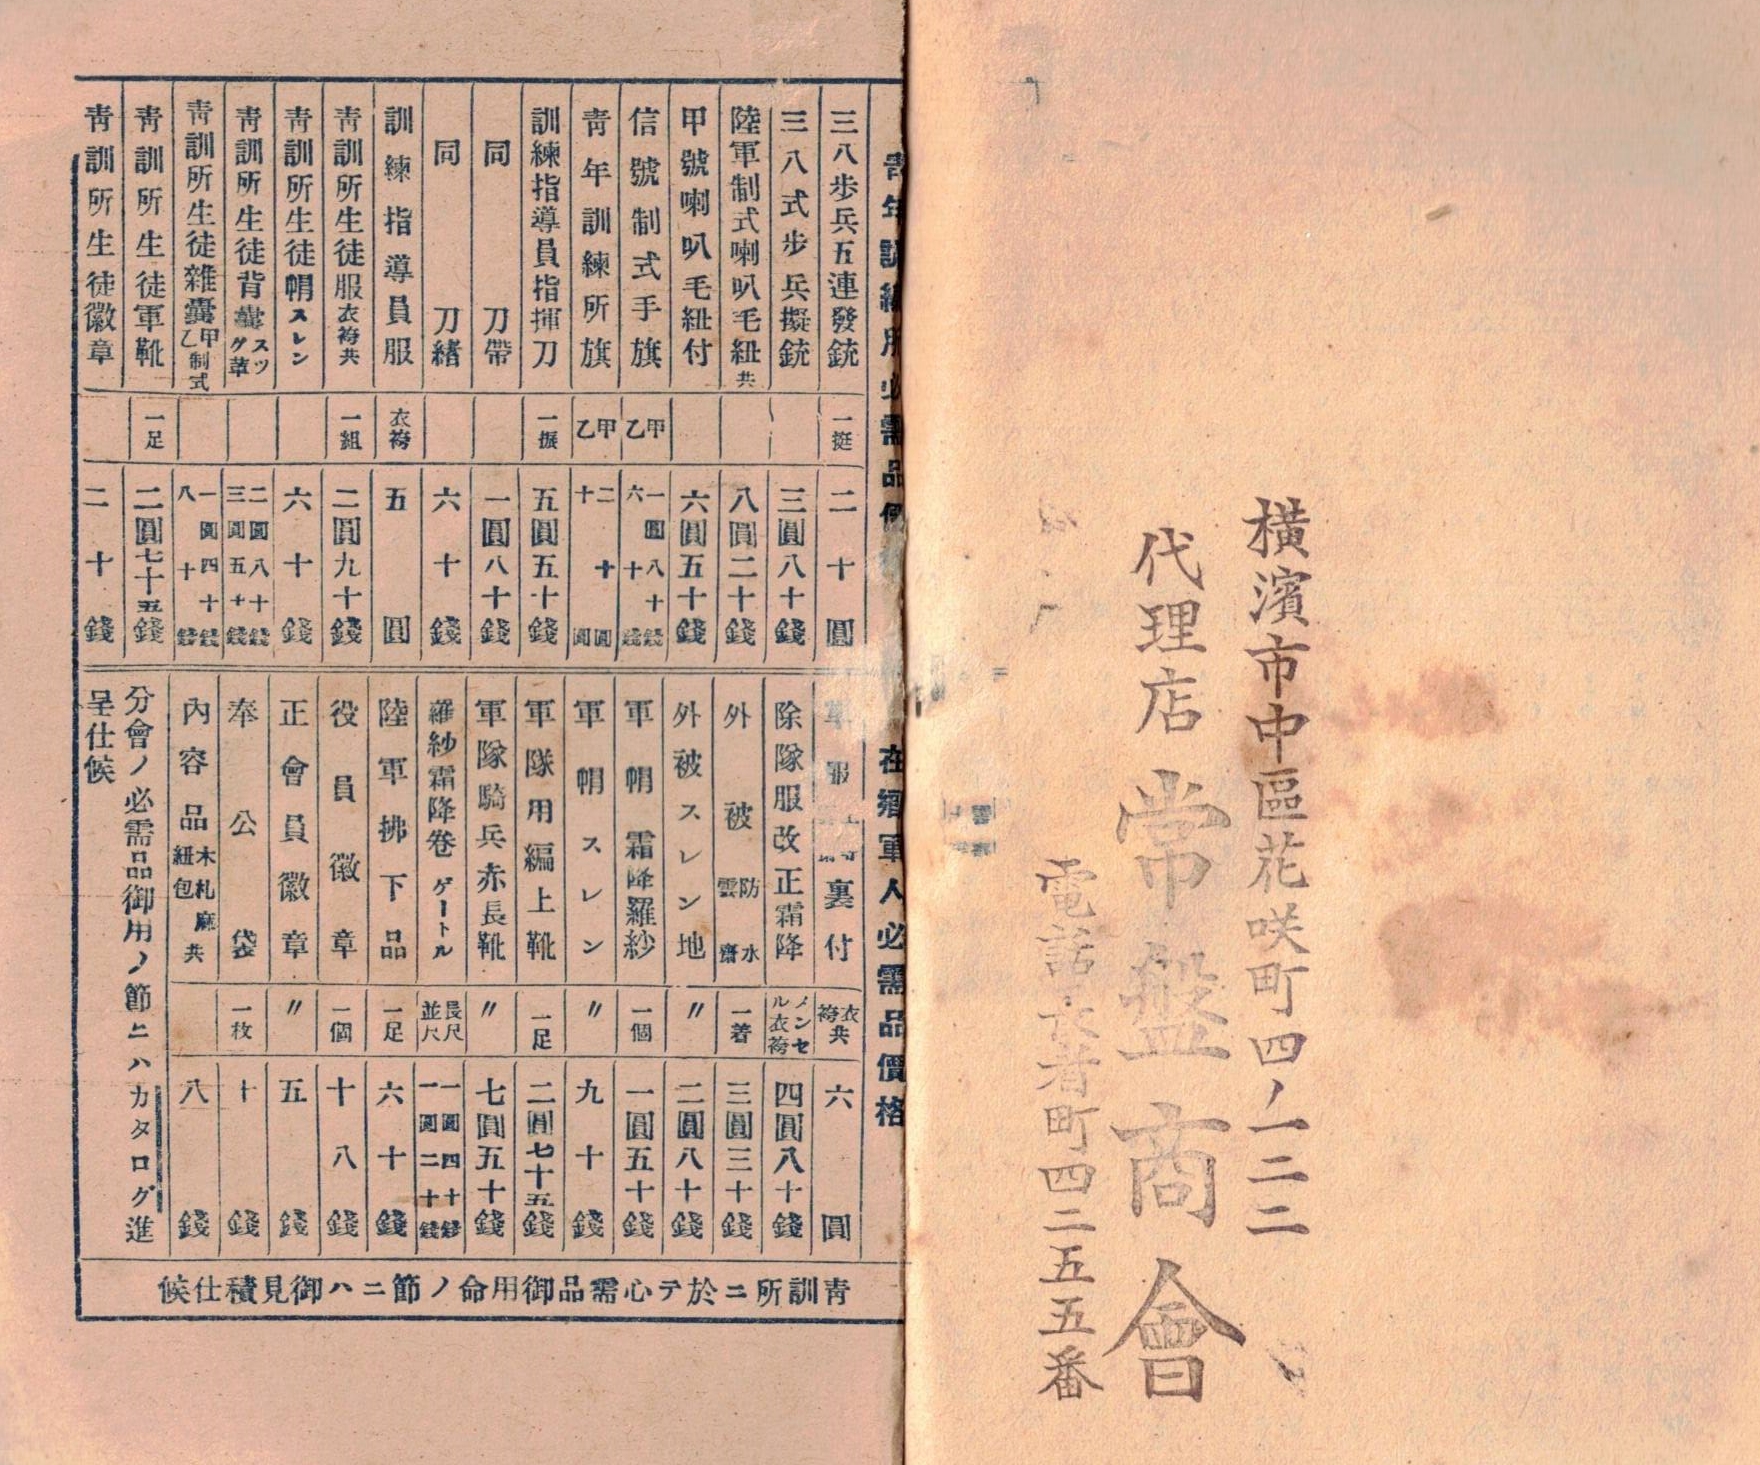 橫濱市中區花咲町四ノ一二二
代理店 常盤商會
電話長者町四二五五番
青年訓練所必需品價
三八歩兵五連發銃 一挺 二十圓
三八式歩兵擬銃 三圓八十錢
陸軍制式喇叭毛紐共 八圓二十錢
甲號喇叭毛紐付 六圓五十錢
信號制式手旗 甲乙 一圓八十錢 六十錢
青年訓練所旗 甲乙 二十圓 十圓
訓練指導員指揮刀 一振 五圓五十錢
同 刀帶 一圓八十錢
同 刀緒 六十錢
訓練指導員服 衣袴 五圓
青訓所生徒服衣袴共 一組 二圓九十錢
青訓所生徒帽スレン 六十錢
青訓所生徒背囊ズックグ革 二圓八十錢 三圓五十錢
青訓所生徒雜囊甲乙制式 一圓四十錢 八十錢
青訓所生徒軍靴 一足 二圓七十五錢
青訓所生徒徽章 二十錢
在鄕軍人必需品價格
軍服 裏付 衣袴共 六圓
除隊服改正霜降 ノンセル衣袴 四圓八十錢
外被 防水雲齋 一着 三圓三十錢
外被スレン地 〃 二圓八十錢
軍帽 霜降羅紗 一個 一圓五十錢
軍帽スレン 〃 九十錢
軍隊用編上靴 一足 二圓七十五錢
軍隊騎兵赤長靴 〃 七圓五十錢
羅紗霜降卷ゲートル 長尺 並尺 一圓四十錢 一圓二十錢
陸軍拂下品 一足 六十錢
役員徽章 一個 十八錢
正會員徽章 〃 五錢
奉公袋 一枚 十錢
內容品 木札麻紐包共 八錢
分會ノ必需品御用ノ節ニハカタログ進
呈仕候
靑訓所ニ於テ心需品御用命ノ節ニハ御見積仕候